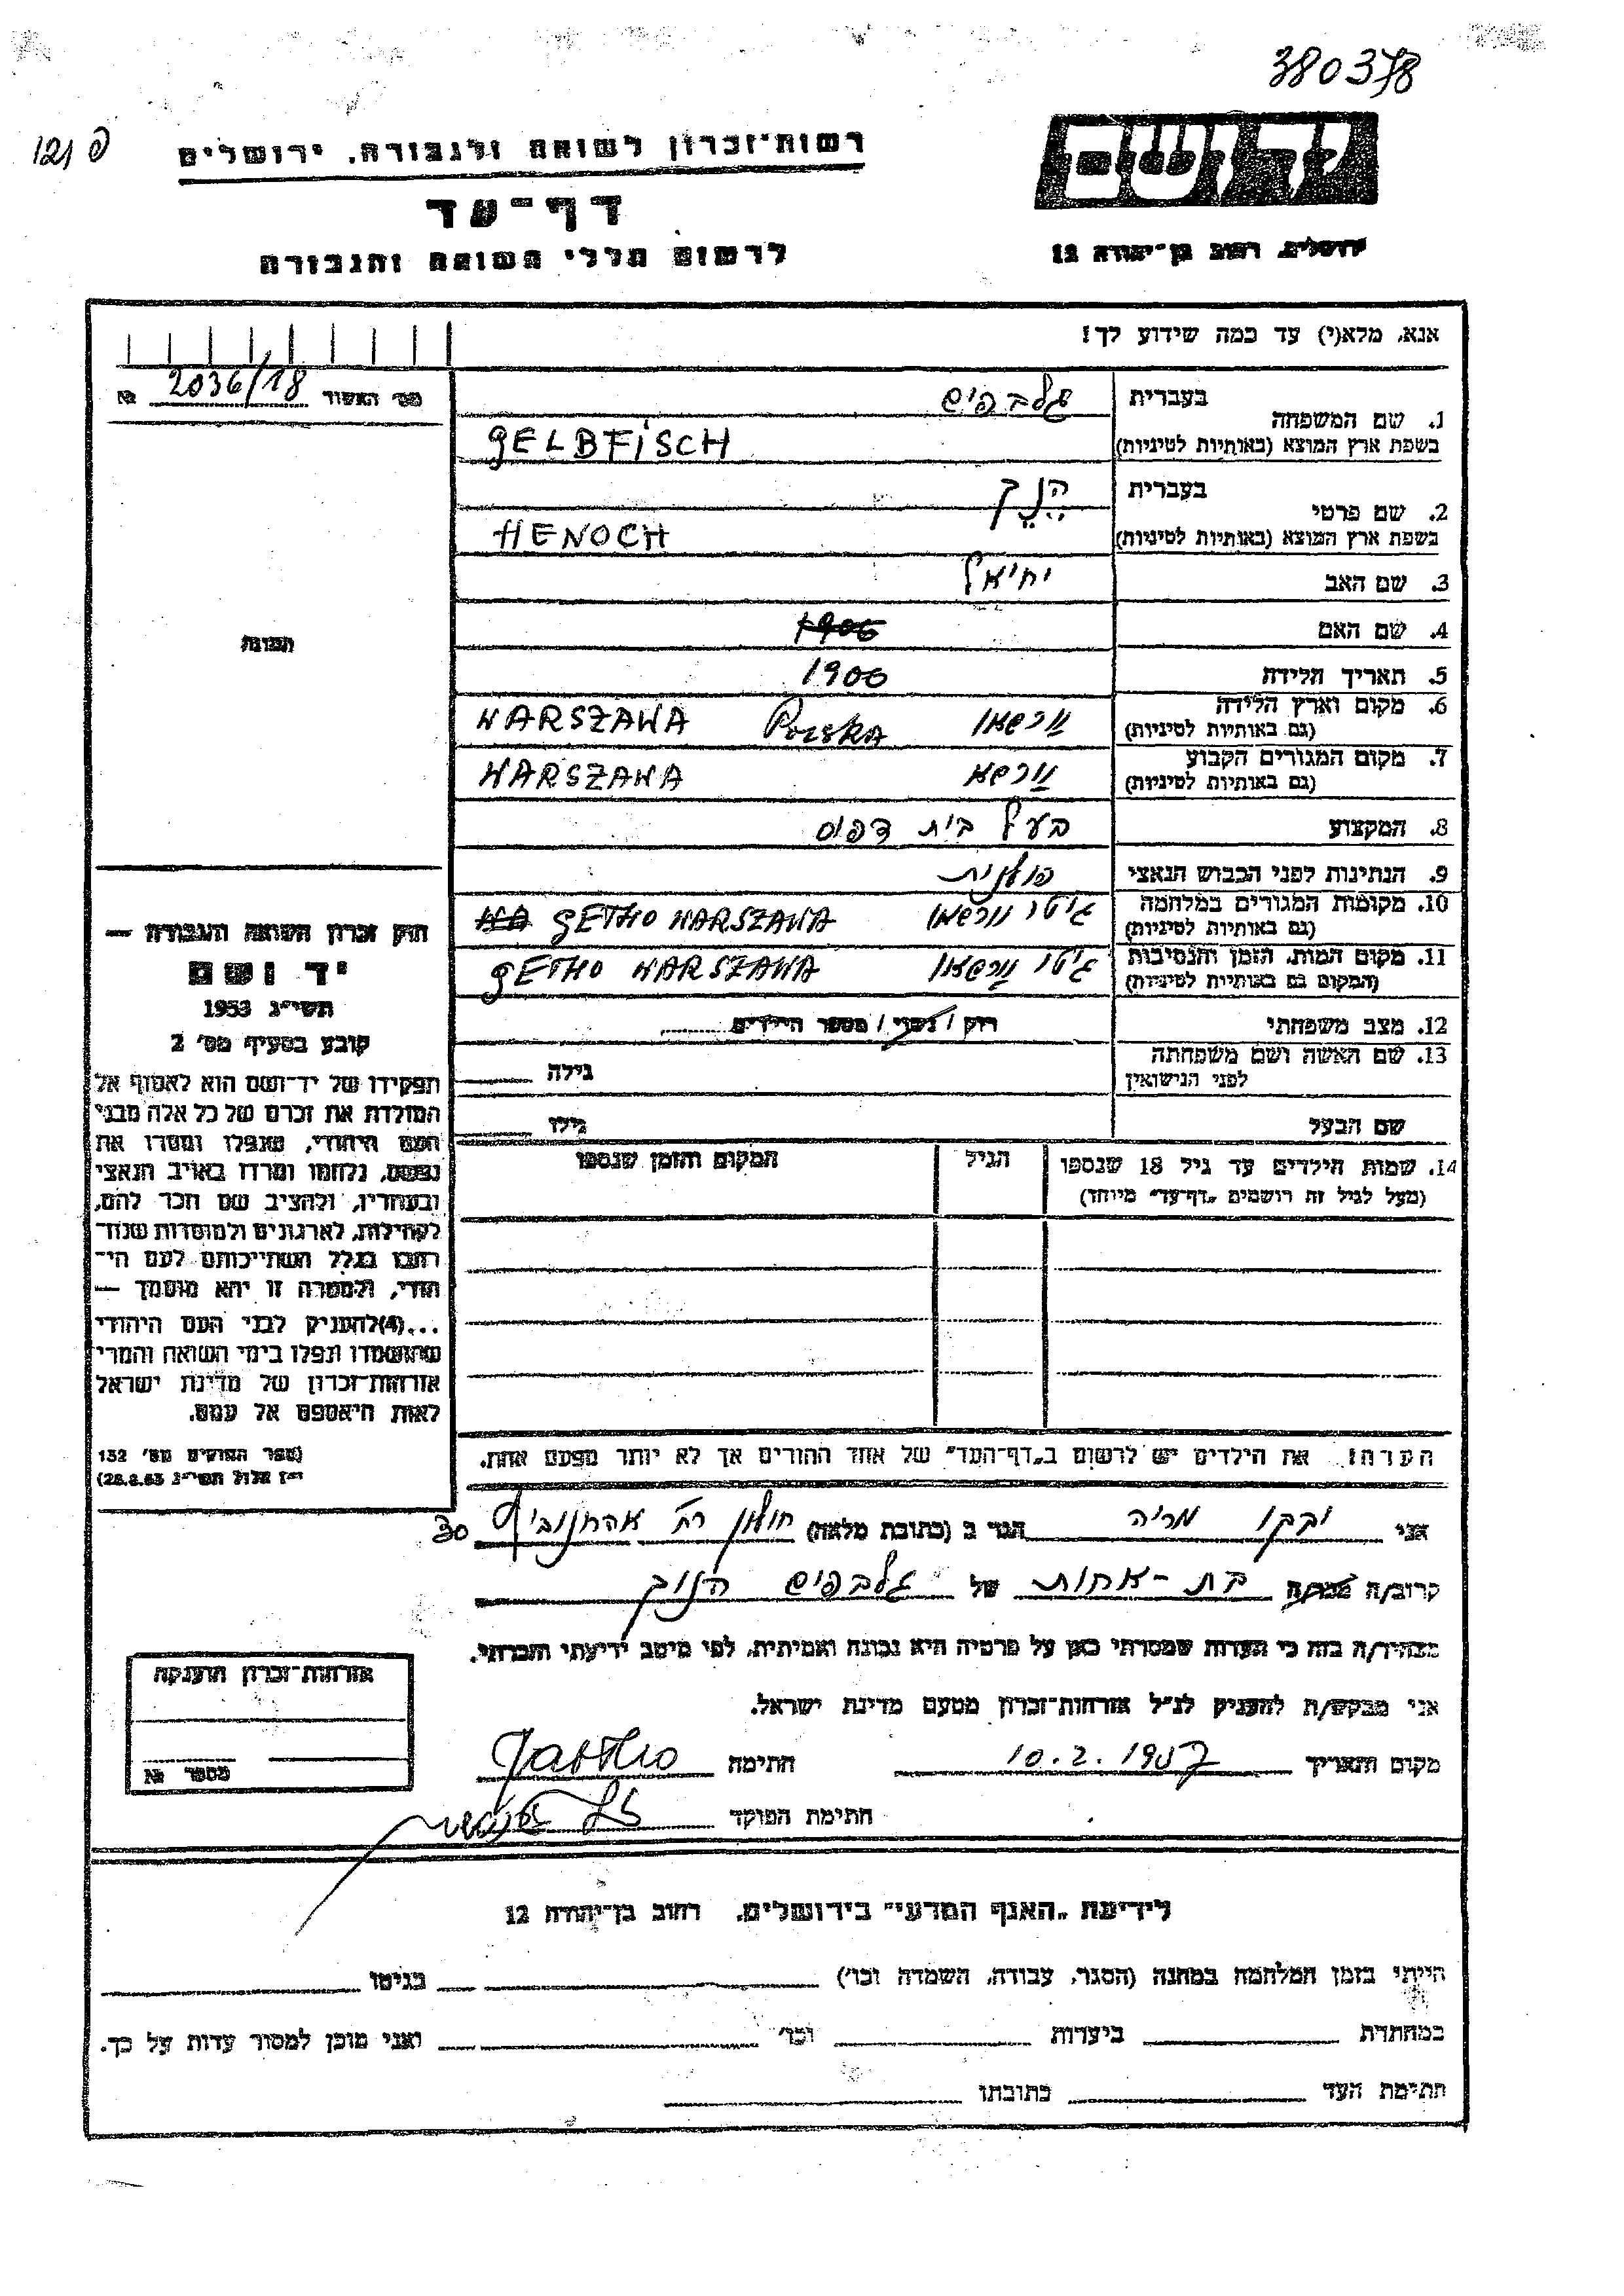 380378
פ 121
יד ושם
ירושלים, רחוב בן־יהודה 12
רשות־זכרון לשואה ולגבורה, ירושלים
דף־עד
לרשום חללי השואה והגבורה
אנא, מלא(י) עד כמה שידוע לך!
1. שם המשפחה
בעברית
גלבפיש
בשפת ארץ המוצא (באותיות לטיניות)
GELBFISCH
2. שם פרטי
בעברית
הֶנֶךְ
בשפת ארץ המוצא (באותיות לטיניות)
HENOCH
3. שם האב
יחיאל
4. שם האם
1906
5. תאריך הלידה
1906
6. מקום וארץ הלידה
(גם באותיות לטיניות)
ורשאו Polska WARSZAWA
7. מקום המגורים הקבוע
(גם באותיות לטיניות)
ורשא WARSZAWA
8. המקצוע
בעל בית דפוס
9. הנתינות לפני הכבוש הנאצי
פולנית
10. מקומות המגורים במלחמה
(גם באותיות לטיניות)
גיטו ורשאו WA GETHO WARSZAWA
11. מקום המות, הזמן והנסיבות
(המקום גם באותיות לטיניות)
גיטו ורשאו GETHO WARSZAWA
12. מצב משפחתי
רוק / נשוי / מספר הילדים
13. שם האשה ושם משפחתה
לפני הנישואין
גילה
שם הבעל
גילו
14. שמות הילדים עד גיל 18 שנספו
(מעל לגיל זה רושמים „דף־עד" מיוחד)
הגיל
המקום והזמן שנספו
הערה: את הילדים יש לרשום ב„דף־העד" של אחד ההורים אך לא יותר מפעם אחת.
מס' האשור 2036/18 №
תמונה
חוק זכרון השואה והגבורה —
יד ושם
תשי"ג 1953
קובע בסעיף מס' 2
תפקידו של יד־ושם הוא לאסוף אל
המולדת את זכרם של כל אלה מבני
העם היהודי, שנפלו ומסרו את
נפשם, נלחמו ומרדו באויב הנאצי
ובעוזריו, ולהציב שם וזכר להם,
לקהילות, לארגונים ולמוסדות שנח־
רבו בגלל השתייכותם לעם הי־
הודי, ולמטרה זו יהא מוסמך —
...(4)להעניק לבני העם היהודי
שהושמדו ונפלו בימי השואה והמרי
אזרחות־זכרון של מדינת ישראל
לאות היאספם אל עמם.
(ספר החוקים מס' 132
י"ז אלול תשי"ג 28.8.53)
אני וקקו מריה הגר ב (כתובת מלאה) חולון רח' אהרונוביץ 30
קרוב/ה מכר/ה בת-אחות של גלבפיש הנוך
מצהיר/ה בזה כי העדות שמסרתי כאן על פרטיה היא נכונה ואמיתית, לפי מיטב ידיעתי והכרתי.
אני מבקש/ת להעניק לנ"ל אזרחות־זכרון מטעם מדינת ישראל.
מקום ותאריך 10.2.1957 חתימה
חתימת הפוקד
אזרחות־זכרון הוענקה
מספר №
לידיעת „האגף המדעי" בירושלים, רחוב בן־יהודה 12
הייתי בזמן המלחמה במחנה (הסגר, עבודה, השמדה וכו') בגיטו
במחתרת ביערות וכו' ואני מוכן למסור עדות על כך.
חתימת העד כתובתו